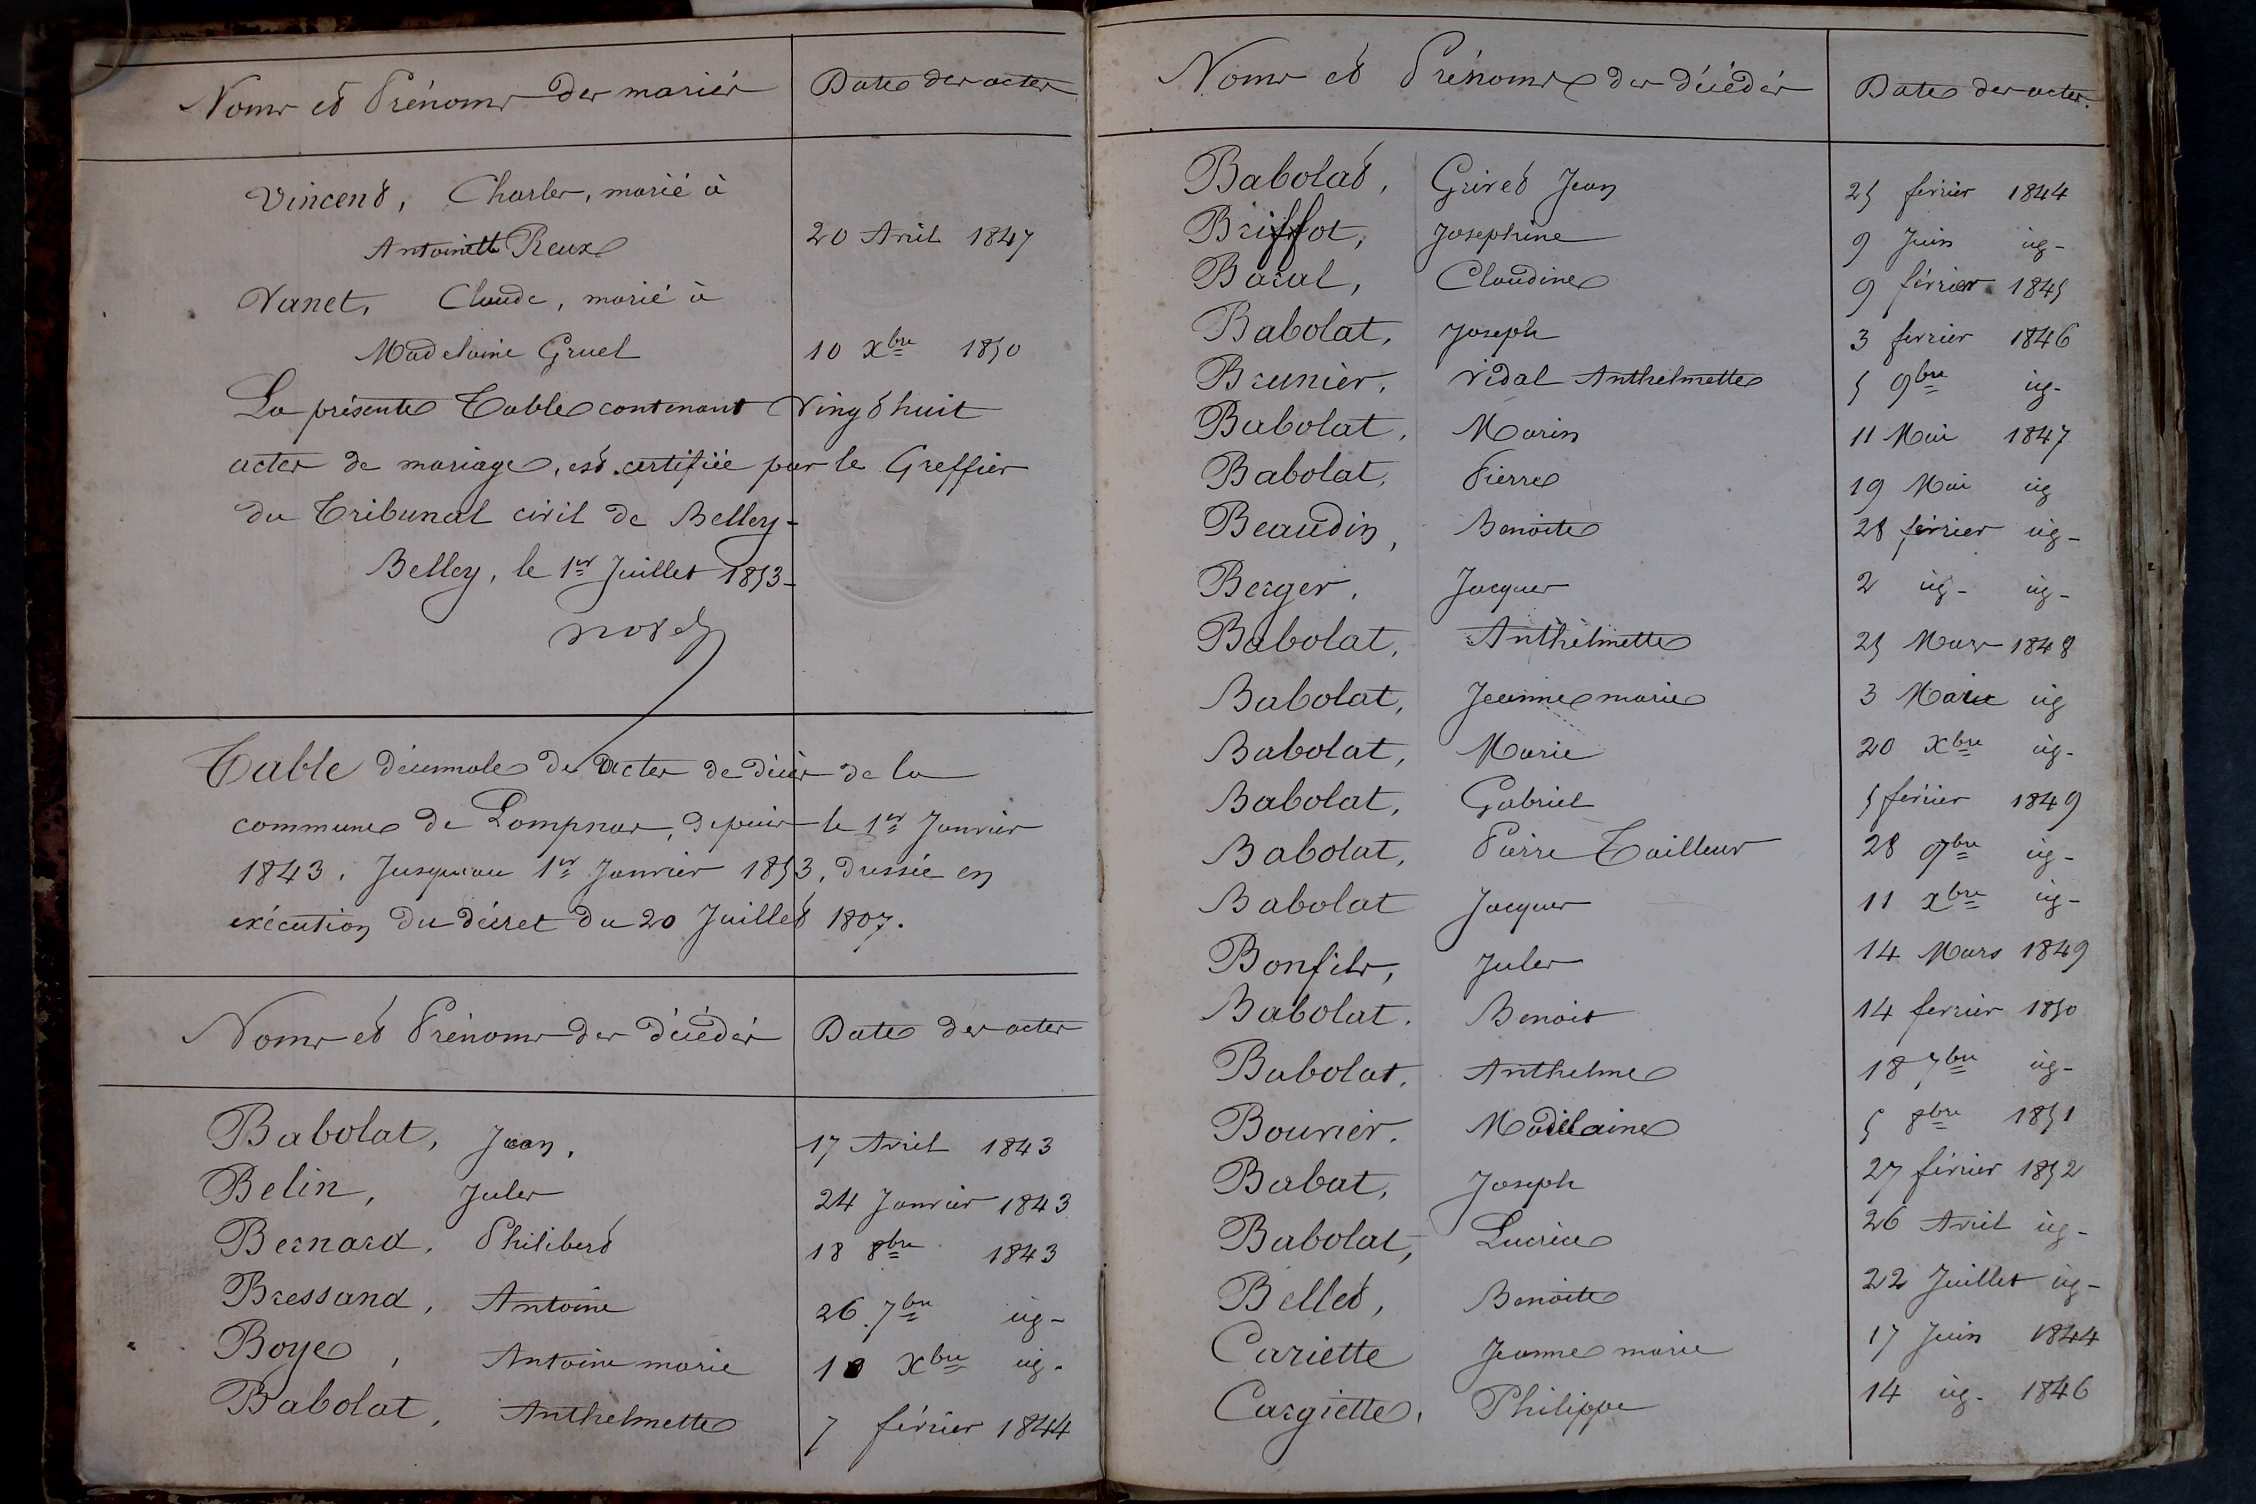 Noms et Prénoms des mariés Date des actes
Vincent, Charles, marié à
Antoinette Reux 20 Avril 1847
Vanet, Claude, marié à
Madelaine Gruel 10 Xbre 1850
La présente Table contenant vingt huit
actes de mariage, est certifiée par le Greffier
du Tribunal civil de Belley -
Belley, le 1er Juillet 1853 -
Table décennale des actes de décès de la
commune de Lompnas, depuis le 1er Janvier
1843, Jusqu'au 1er Janvier 1853, dressée en
exécution du décret du 20 Juillet 1807.
Noms et Prénoms des décédés Date des actes
Babolat, Jean, 17 Avril 1843
Belin, Jules 24 Janvier 1843
Bernard, Philibert 18 8bre 1843
Bressand, Antoine 26 7bre ig -
Boye, Antoine marie Xbre ig -
Babolat, Anthelmette 7 février 1844
Noms et Prénoms des décédés Date des actes.
Babolat, Grivet Jean 25 février 1844
Briffot, Josephine 9 Juin ig -
Baral, Claudine 9 février 1845
Babolat, Joseph 3 fevrier 1846
Brunier, Vidal Anthelmette 5 9bre ig -
Babolat, Marin 11 Mai 1847
Babolat, Pierre 19 Mai ig
Beaudin, Benoite 28 février ig -
Berger, Jacques 2 ig - ig -
Babolat, Anthelmette 25 Mars 1848
Babolat, Jeanne marie 3 ig
Babolat, Marie 20 Xbre ig -
Babolat, Gabriel 5 février 1849
Babolat, Pierre Tailleur 28 9bre ig -
Babolat Jacques 11 Xbre ig -
Bonfils, Jules 14 Mars 1849
Babolat, Benoit 14 fevrier 1850
Babolat, Anthelme 18 7bre ig -
Bouvier, Madelaine 5 8bre 1851
Barbat, Joseph 27 février 1852
Babolat, Lucrèce 26 Avril ig -
Bellet, Benoite 22 Juillet ig -
Cariette Jeanne marie 17 Juin 1844
Cargiette, Philippe 14 ig - 1846